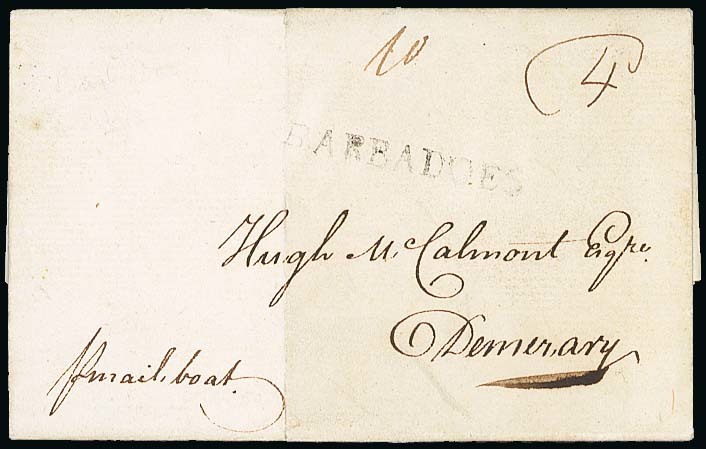 10
4
BARBADOES
Hugh Mc Calmont Esqre.
Demerary
p mail boat